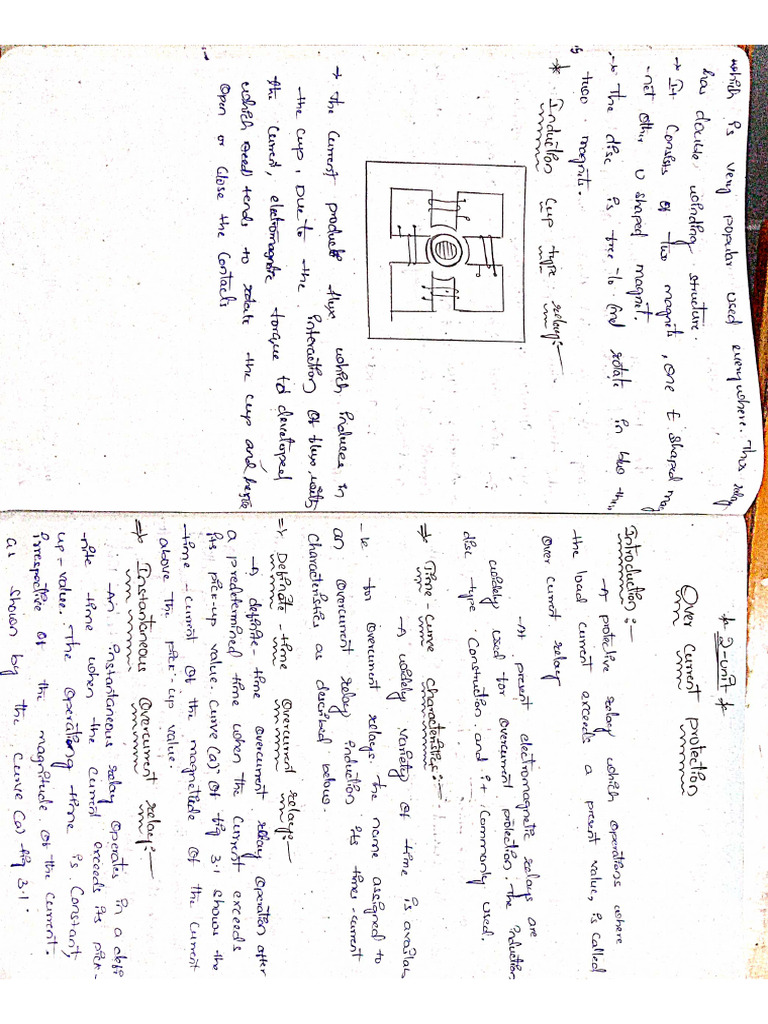 which is very popular used everywhere. This relay
has double winding structure.
→ It consists of two magnets, one E shaped mag
-net other U shaped magnet.
→ The disc is free to and rotate in b/w the
two magnets.
* Induction cup type relay:-
→ The current produces flux which induces in
the cup. Due to the interaction of flux with
the current, electromagnetic torque to developed
which creed tends to rotate the cup and hence
open or close the contacts
* 2-unit *
Over Current protection
Introduction:-
→ A protective relay which operations where
the load current exceeds a present value, is called
over current relay
→ At present electromagnetic relays are
widely used for overcurrent protection. The induction
disc type construction and it commonly used.
⇒ Time-curve characteristics:-
→ A widely variety of time is availab
-le for overcurrent relays. The name assigned to
an overcurrent relay induction its times-current
characteristics as described below.
⇒ Definate-time overcurrent relay:-
→ A definite-time overcurrent relay operation after
a predetermined time when the current exceeds
its pick-up value. curve (a) of fig 3.1 shows the
time-current of the magnetude of the current
above the pick-up value.
⇒ Instantaneous Overcurrent relay:-
→ An instantaneous relay operates in a defi
-nite time when the current exceeds its pick-
up-value. The operating time is constant,
irrespective of the magnitude of the current.
as shown by the curve (a) fig 3.1.